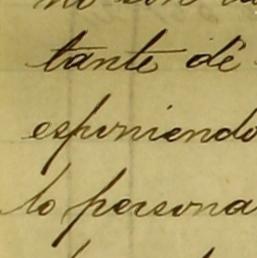 no son
tante de
esponiendo
lo persona